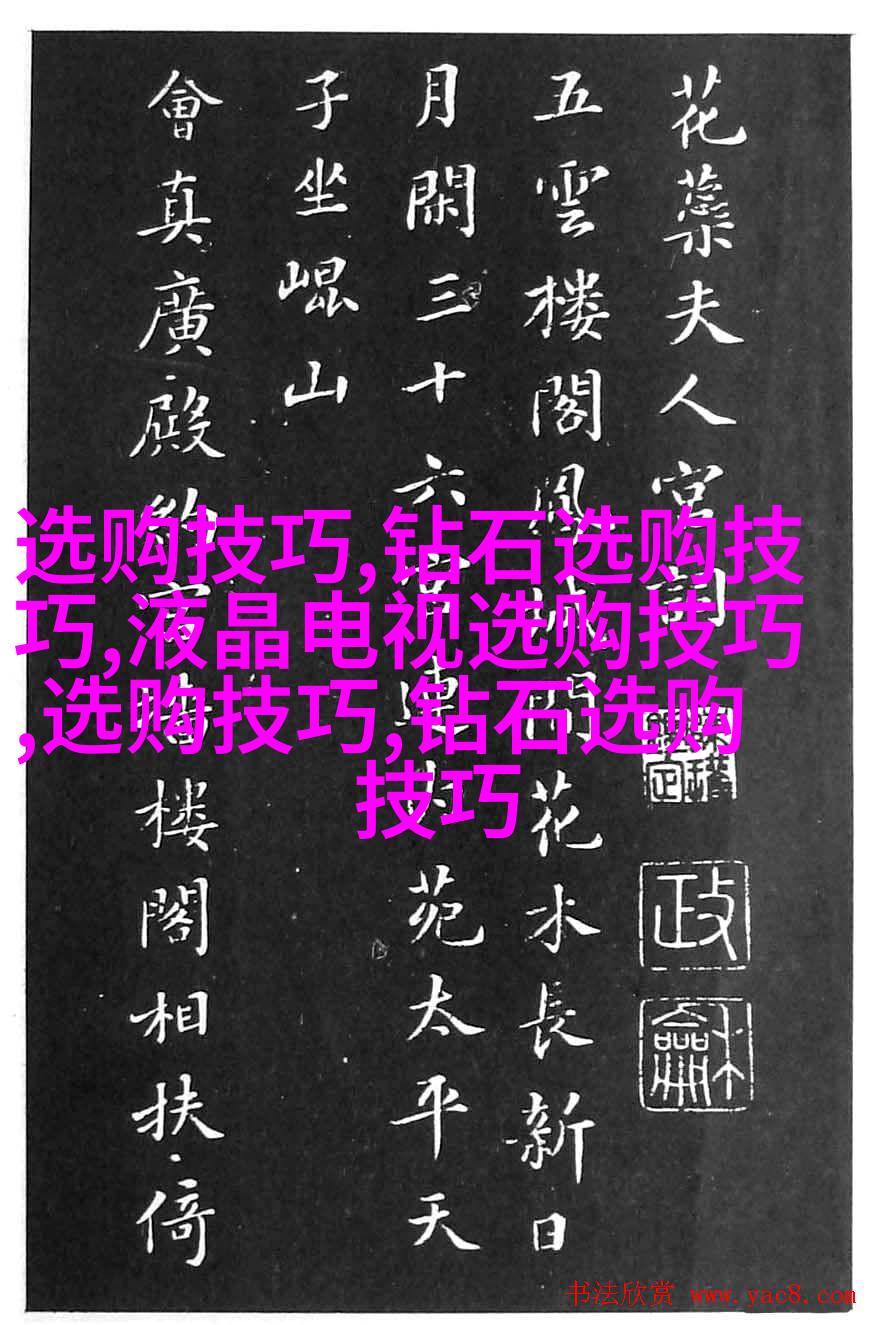 花蘂夫人宮詞
政
龢
五雲楼閣鳳城間花水長新日
月閑三十六宮連内苑太平天
子坐崐山
會真廣殿約宮牆楼閣相扶倚
选购技巧,钻石选购技
巧,液晶电视选购技巧
,选购技巧,钻石选购
技巧
书法欣赏 www.yac8.com